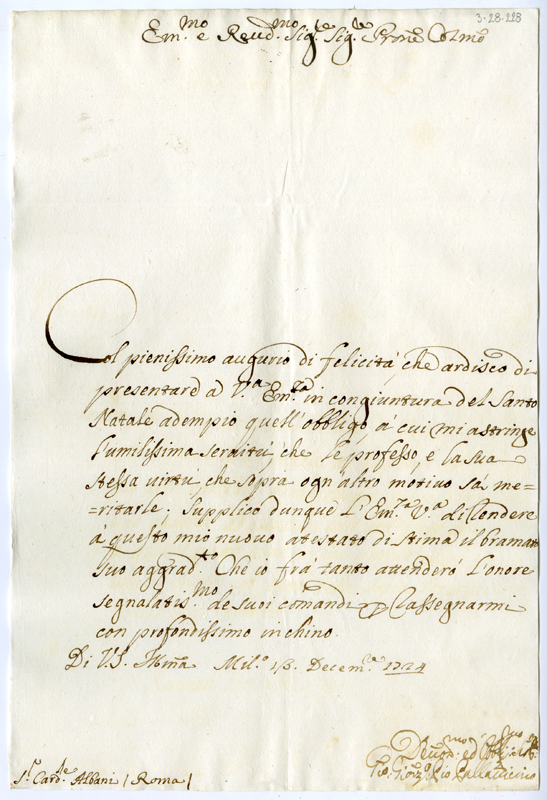 3-28-223
Em.mo e Reud.mo Sig.re Sig.re Prone Colmo
Col pienissimo augurio di felicità che ardisco di
presentare à V.a Em.za in congiuntura del Santo
Natale adempio quell'obbligo, à cui mi astringe
l'umilissima seruitù che le professo, e la sua
stessa uirtù, che sopra ogn altro motiuo sa me=
=ritarle; Supplico dunque l'Em.za V.a di
à questo mio nuouo atestato di stima il bramato
suo aggrad.to Che io frà tanto attenderò l'onore
segnalatis.mo de suoi comandi p Rassegnarmi
con profondissimo inchino.
Di V.S. Mil.o 13. Decem.e 1724
Deuom.o ed Obblig.
Pallauicino
S.r Card.le Albani / Roma /